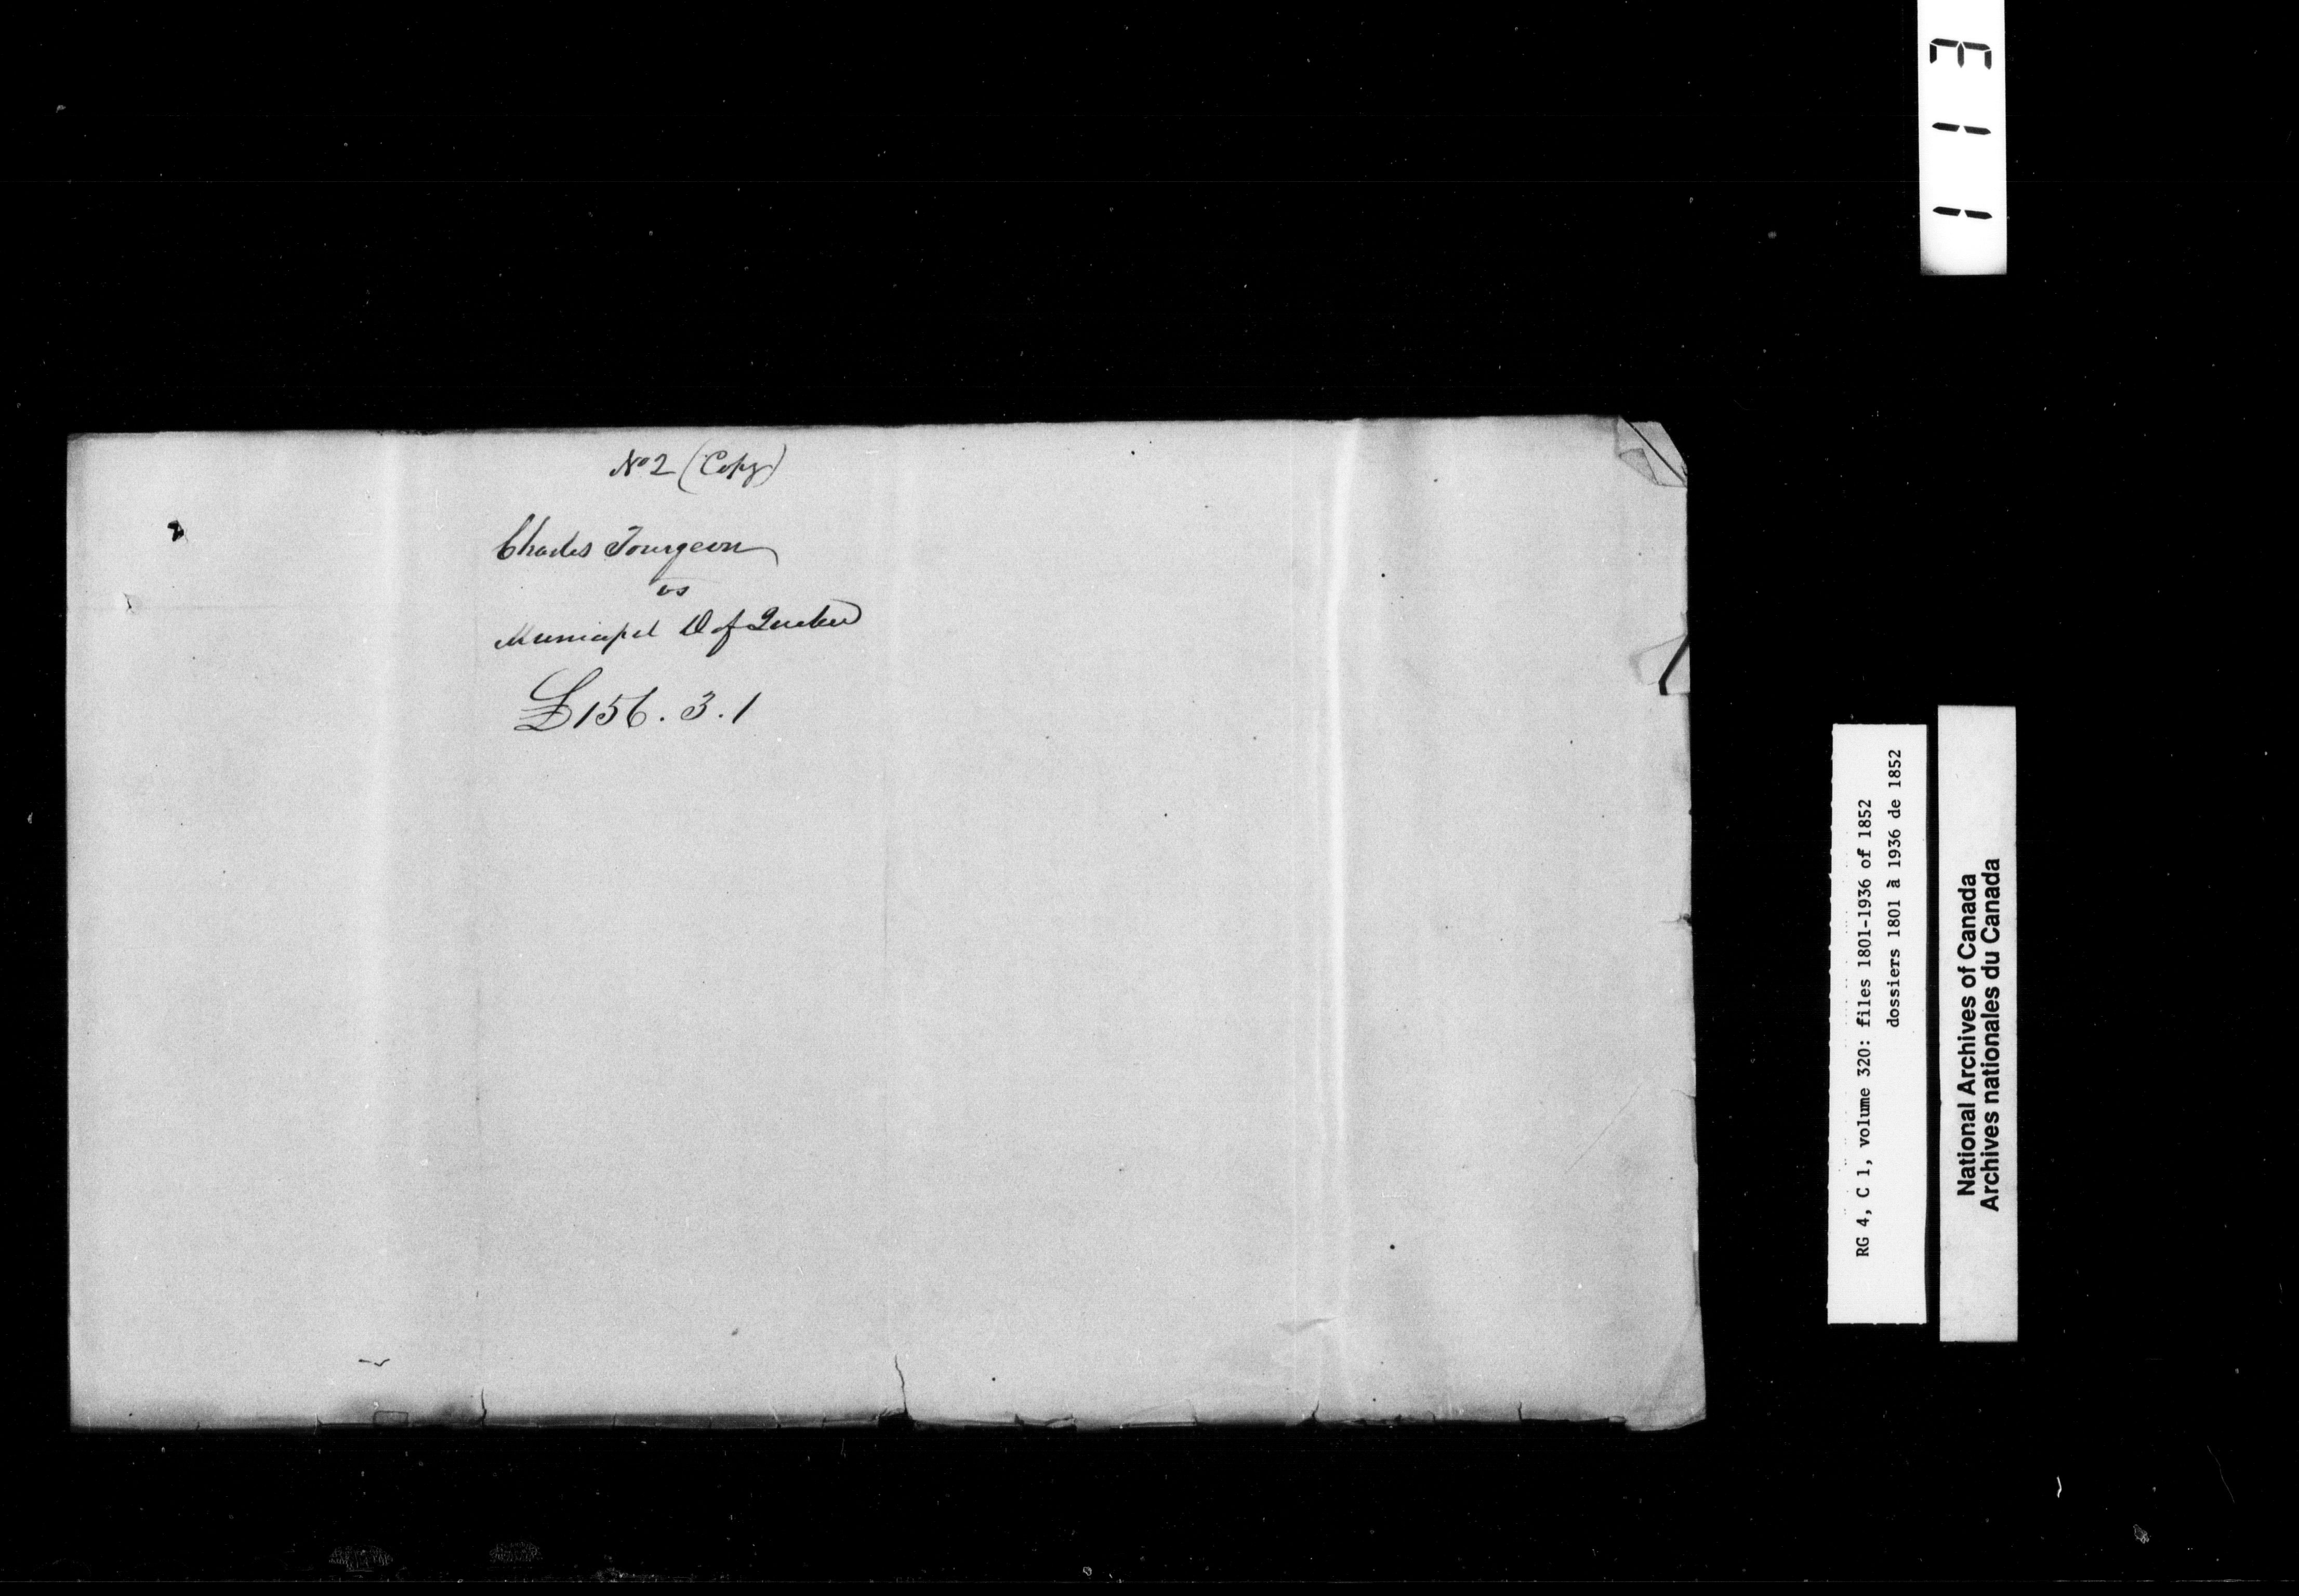 No 2 (Copy)
Charles Tourgeon
vs
Municipal D of Quebec
£156. 3. 1
113
RG 4, C 1, volume 320: files 1801-1936 of 1852
dossiers 1801 à 1936 de 1852
National Archives of Canada
Archives nationales du Canada